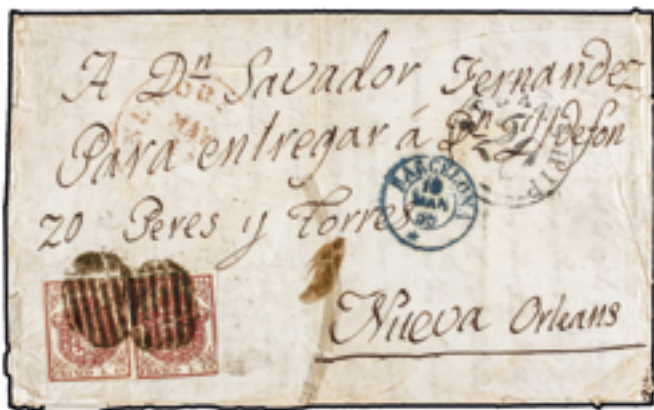 A Dn Savador Fernandez
Para entregar á Dn Yldefon
zo Peres y Torres
BARCELONA
18
MAR
Nueva Orleans